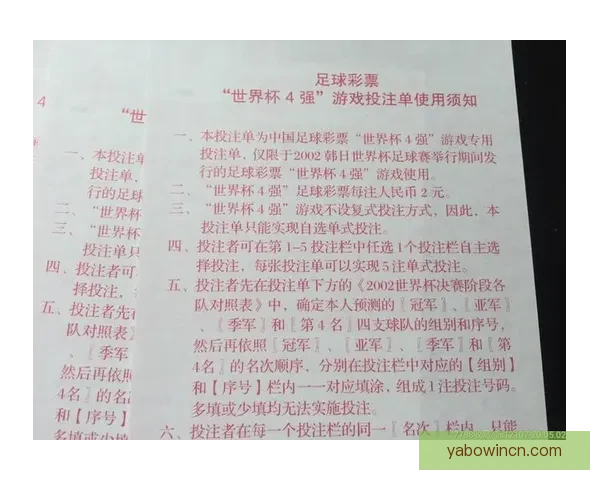 足球彩票
“世界杯 4 强”游戏投注单使用须知
一、本投注单为中国足球彩票“世界杯 4 强”游戏专用
投注单，仅限于2002 韩日世界杯足球赛举行期间发
行的足球彩票“世界杯 4 强”游戏使用。
二、“世界杯 4 强”足球彩票每注人民币 2 元。
三、“世界杯 4 强”游戏不设复式投注方式，因此，本
投注单只能实现自选单式投注。
四、投注者可在第 1–5 投注栏中任选 1个投注栏自主选
择投注，每张投注单可以实现 5 注单式投注。
五、投注者先在投注单下方的《2002世界杯决赛阶段各
队对照表》中，确定本人预测的〖冠军〗、〖亚军〗
、〖季军〗和〖第 4 名〗四支球队的组别和序号，
然后再依照〖冠军〗、〖亚军〗、〖季军〗和〖第
4名〗的名次顺序，分别在投注栏中对应的【组别】
和【序号】栏内一一对应填涂，组成 1 注投注号码。
多填或少填均无法实施投注。
六、投注者在每一个投注栏的同一〖名次〗栏内，只能
4
“世
一、本投注单
投注单，
行的足球
二、“世界杯
三、“世界杯
投注单只
四、投注者可
择投注，
五、投注者先在
队对照表》
、〖季军
然后再依照
4名〗的名
和【序号】
多填或少填
六、投注者
yabowincn.com